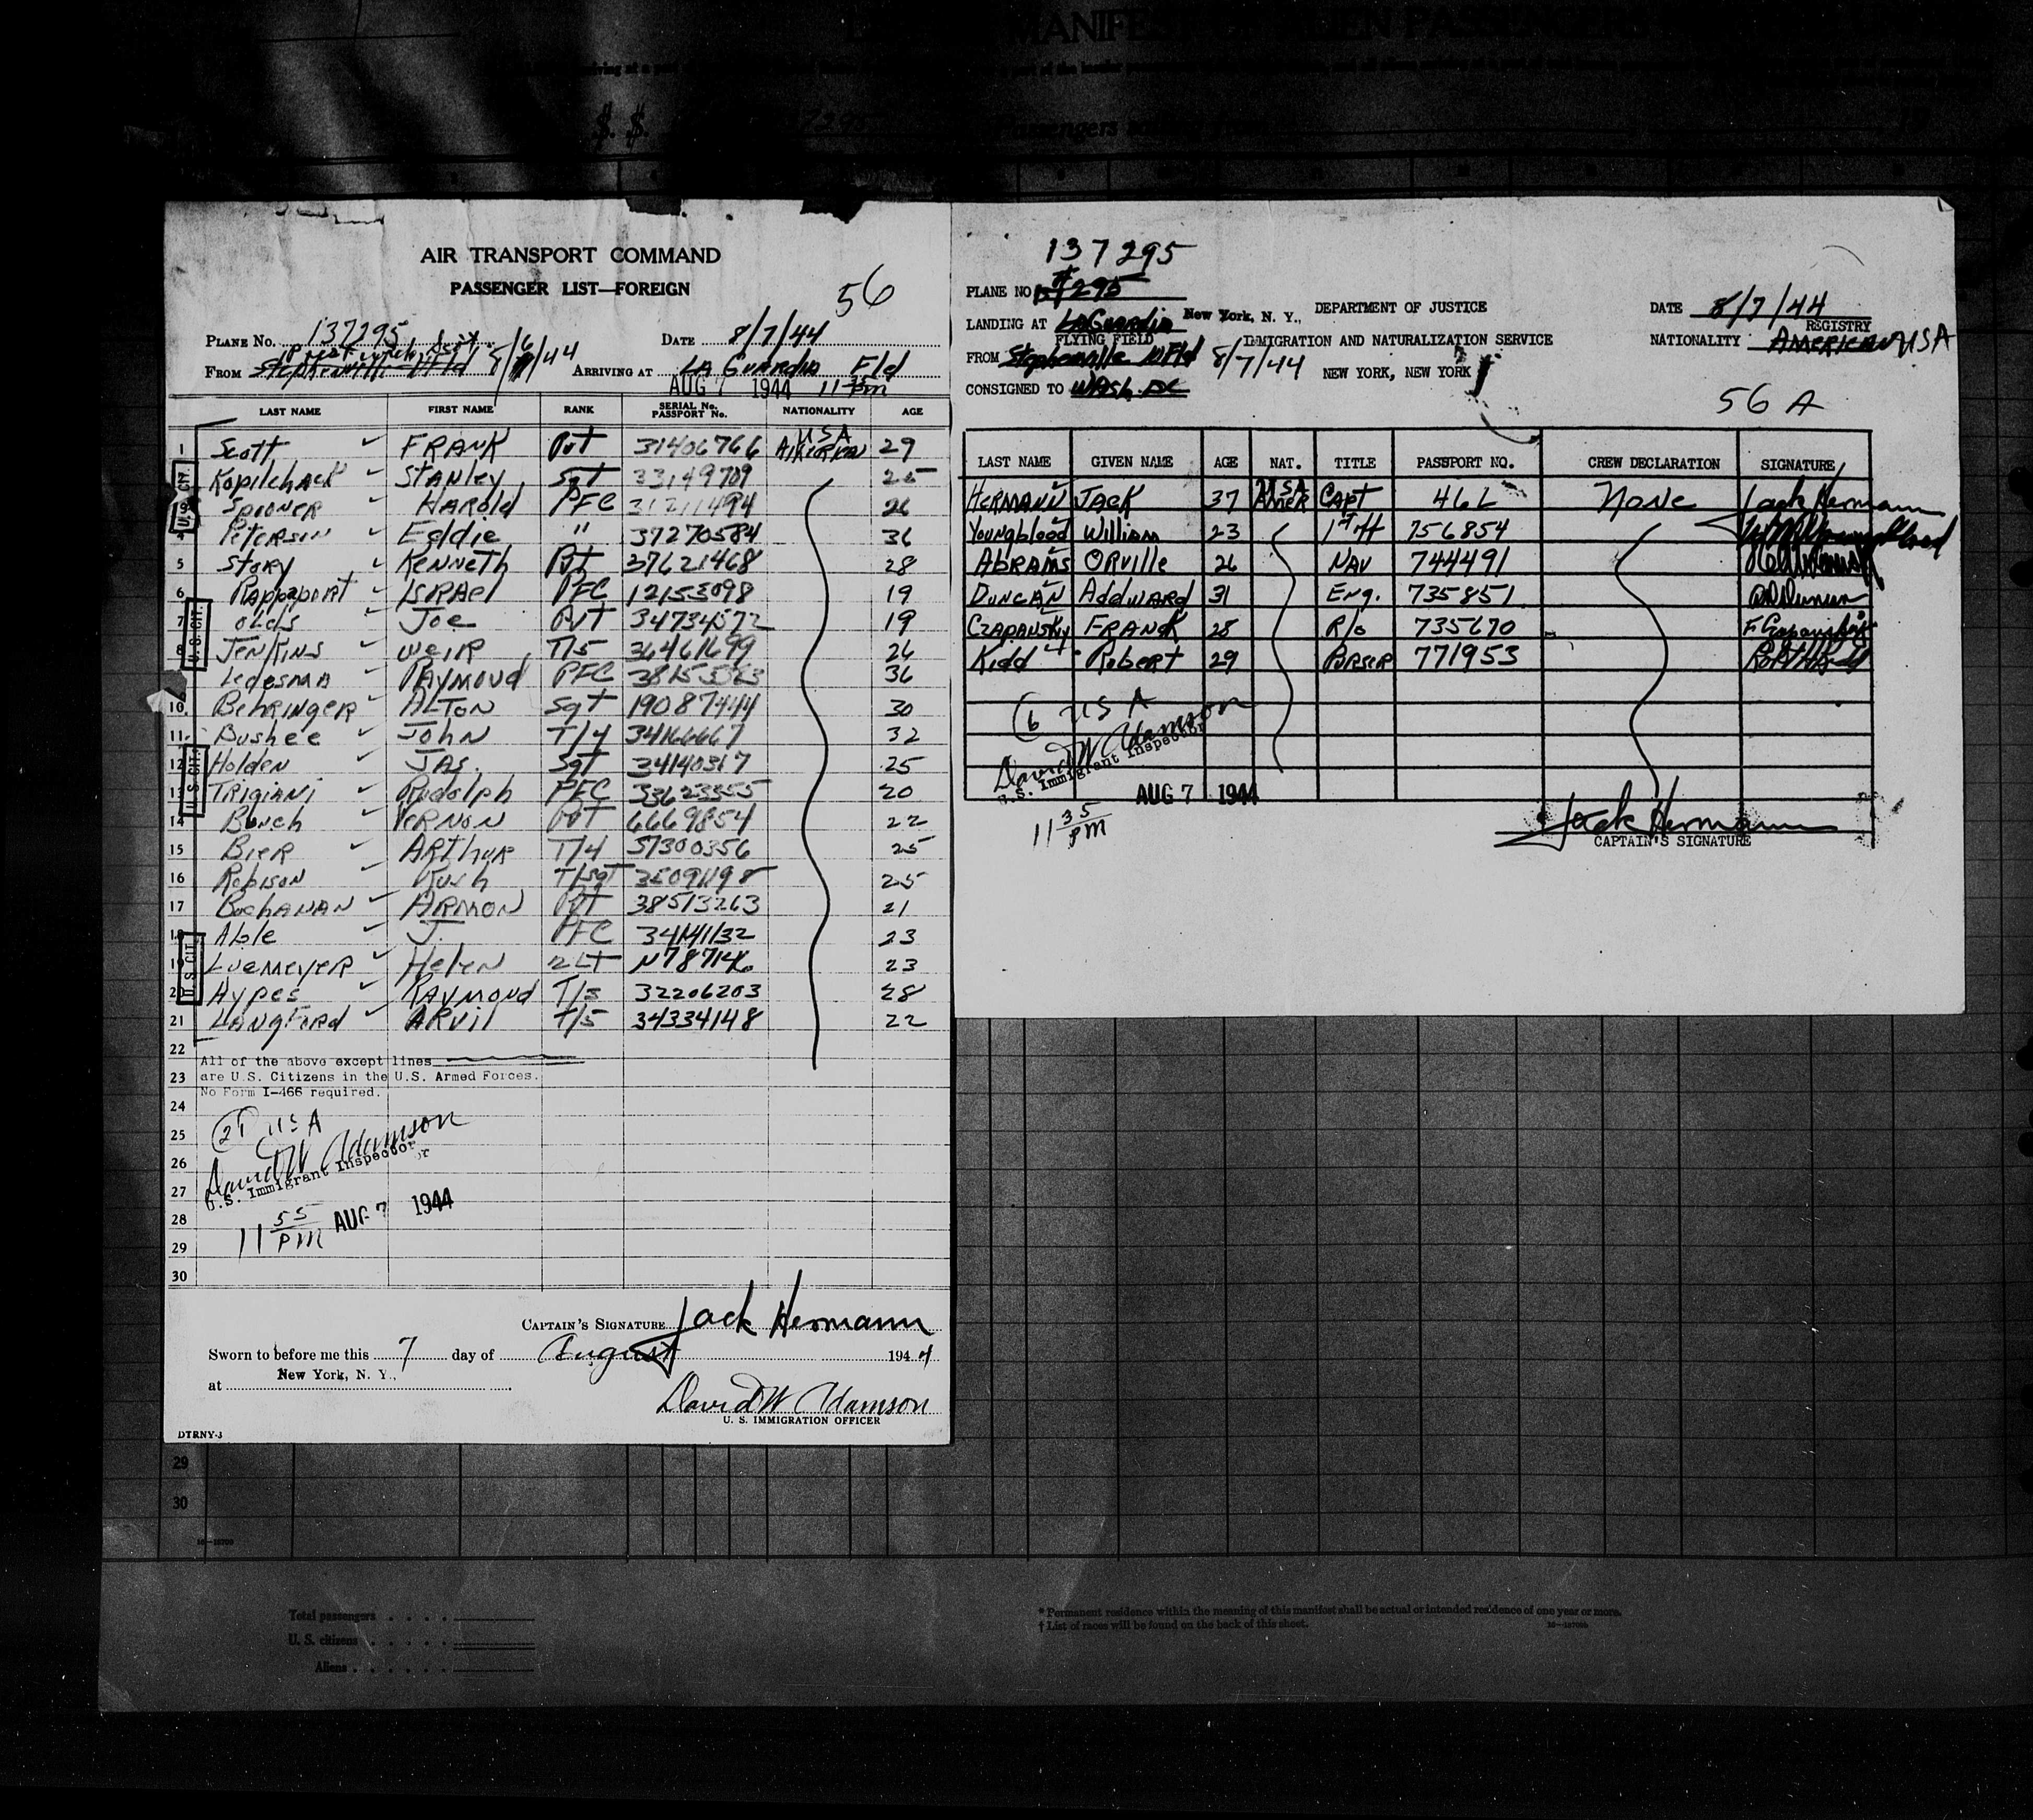 MANIFEST OF ALIEN PASSENGERS
AIR TRANSPORT COMMAND
PASSENGER LIST—FOREIGN
56
PLANE NO. 137295 DATE 8/7/44
Prestwick Scot. 8/6/44
FROM Stephenville Fld ARRIVING AT LA GuArdia Fld
AUG 7 1944 11 PM
LAST NAME FIRST NAME RANK SERIAL No. PASSPORT No. NATIONALITY AGE
1 Scott FRANK Pvt 31406766 USA AMERICAN 29
Kopilchack STANley Sgt 33149709 25
Spooner HARold PFC 31211494 26
4 Peterson Eddie " 37270584 36
5 Story KENNETH Pvt 37621468 28
6 Rappaport ISRAel PFC 12153098 19
7 olds Joe PVT 34734572 19
8 JenKins weir T/5 36461699 26
Ledesma RAYMOND PFC 36
10 Behringer ALTON Sgt 19087444 30
11 Bushee John T/4 34166667 32
12 Holden JAS. Sgt 34140317 25
13 TRIgiANi Rudolph PFC 33623355 20
14 Bunch VERNON PVT 6669854 22
15 Bier ARThur T/4 37300356 25
16 Robison Rush T/Sgt 35091198 25
17 BuchANAN ARMON PVT 38513263 21
18 Able J. PFC 34141132 23
19 LueMeyer Helen 2LT N787146 23
20 Hypes RAYMOND T/5 32206203 28
21 LANgFord ARvil T/5 34334148 22
U.S. CIT.
U.S. CIT.
U.S. CIT.
U.S. CIT.
22
All of the above except lines
23 are U.S. Citizens in the U.S. Armed Forces.
No Form I-466 required.
24
25 21 USA
26 David W Adamson
27 U.S. Immigrant Inspector
28 11 55 PM AUG 7 1944
29
30
CAPTAIN'S SIGNATURE Jack Hermann
Sworn to before me this 7 day of August 1944
at New York, N. Y.,
David W Adamson
U. S. IMMIGRATION OFFICER
DTRNY-3
137295
PLANE NO. #295 DEPARTMENT OF JUSTICE DATE 8/7/44
LANDING AT LAGuardia New York, N. Y., REGISTRY
FLYING FIELD IMMIGRATION AND NATURALIZATION SERVICE NATIONALITY AMERICAN USA
FROM Stephenville NFld 8/7/44 NEW YORK, NEW YORK
CONSIGNED TO WASh. DC
56 A
LAST NAME GIVEN NAME AGE NAT. TITLE PASSPORT NO. CREW DECLARATION SIGNATURE
HERMANN JACK 37 USA AMER CAPT 46L NONE Jack Hermann
Youngblood William 23 756854
ABRAMS ORville 26 NAV 744491
DUNCAN Addward 31 Eng. 735851
CZAPANSKY FRANK 28 R/o 735670
Kidd Robert 29 PURSER 771953
6 USA
David W Adamson
U.S. Immigrant Inspector
AUG 7 1944
11 35 PM
Jack Hermann
CAPTAIN'S SIGNATURE
29
30
Total passengers
U. S. citizens
Aliens
* Permanent residence within the meaning of this manifest shall be actual or intended residence of one year or more.
† List of races will be found on the back of this sheet.